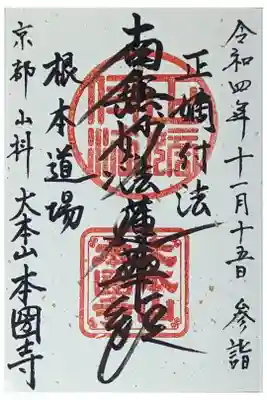 令和四年十一月十五日 参詣
正嫡付法
南無妙法蓮華経
根本道場
京都 山科 大本山 本圀寺